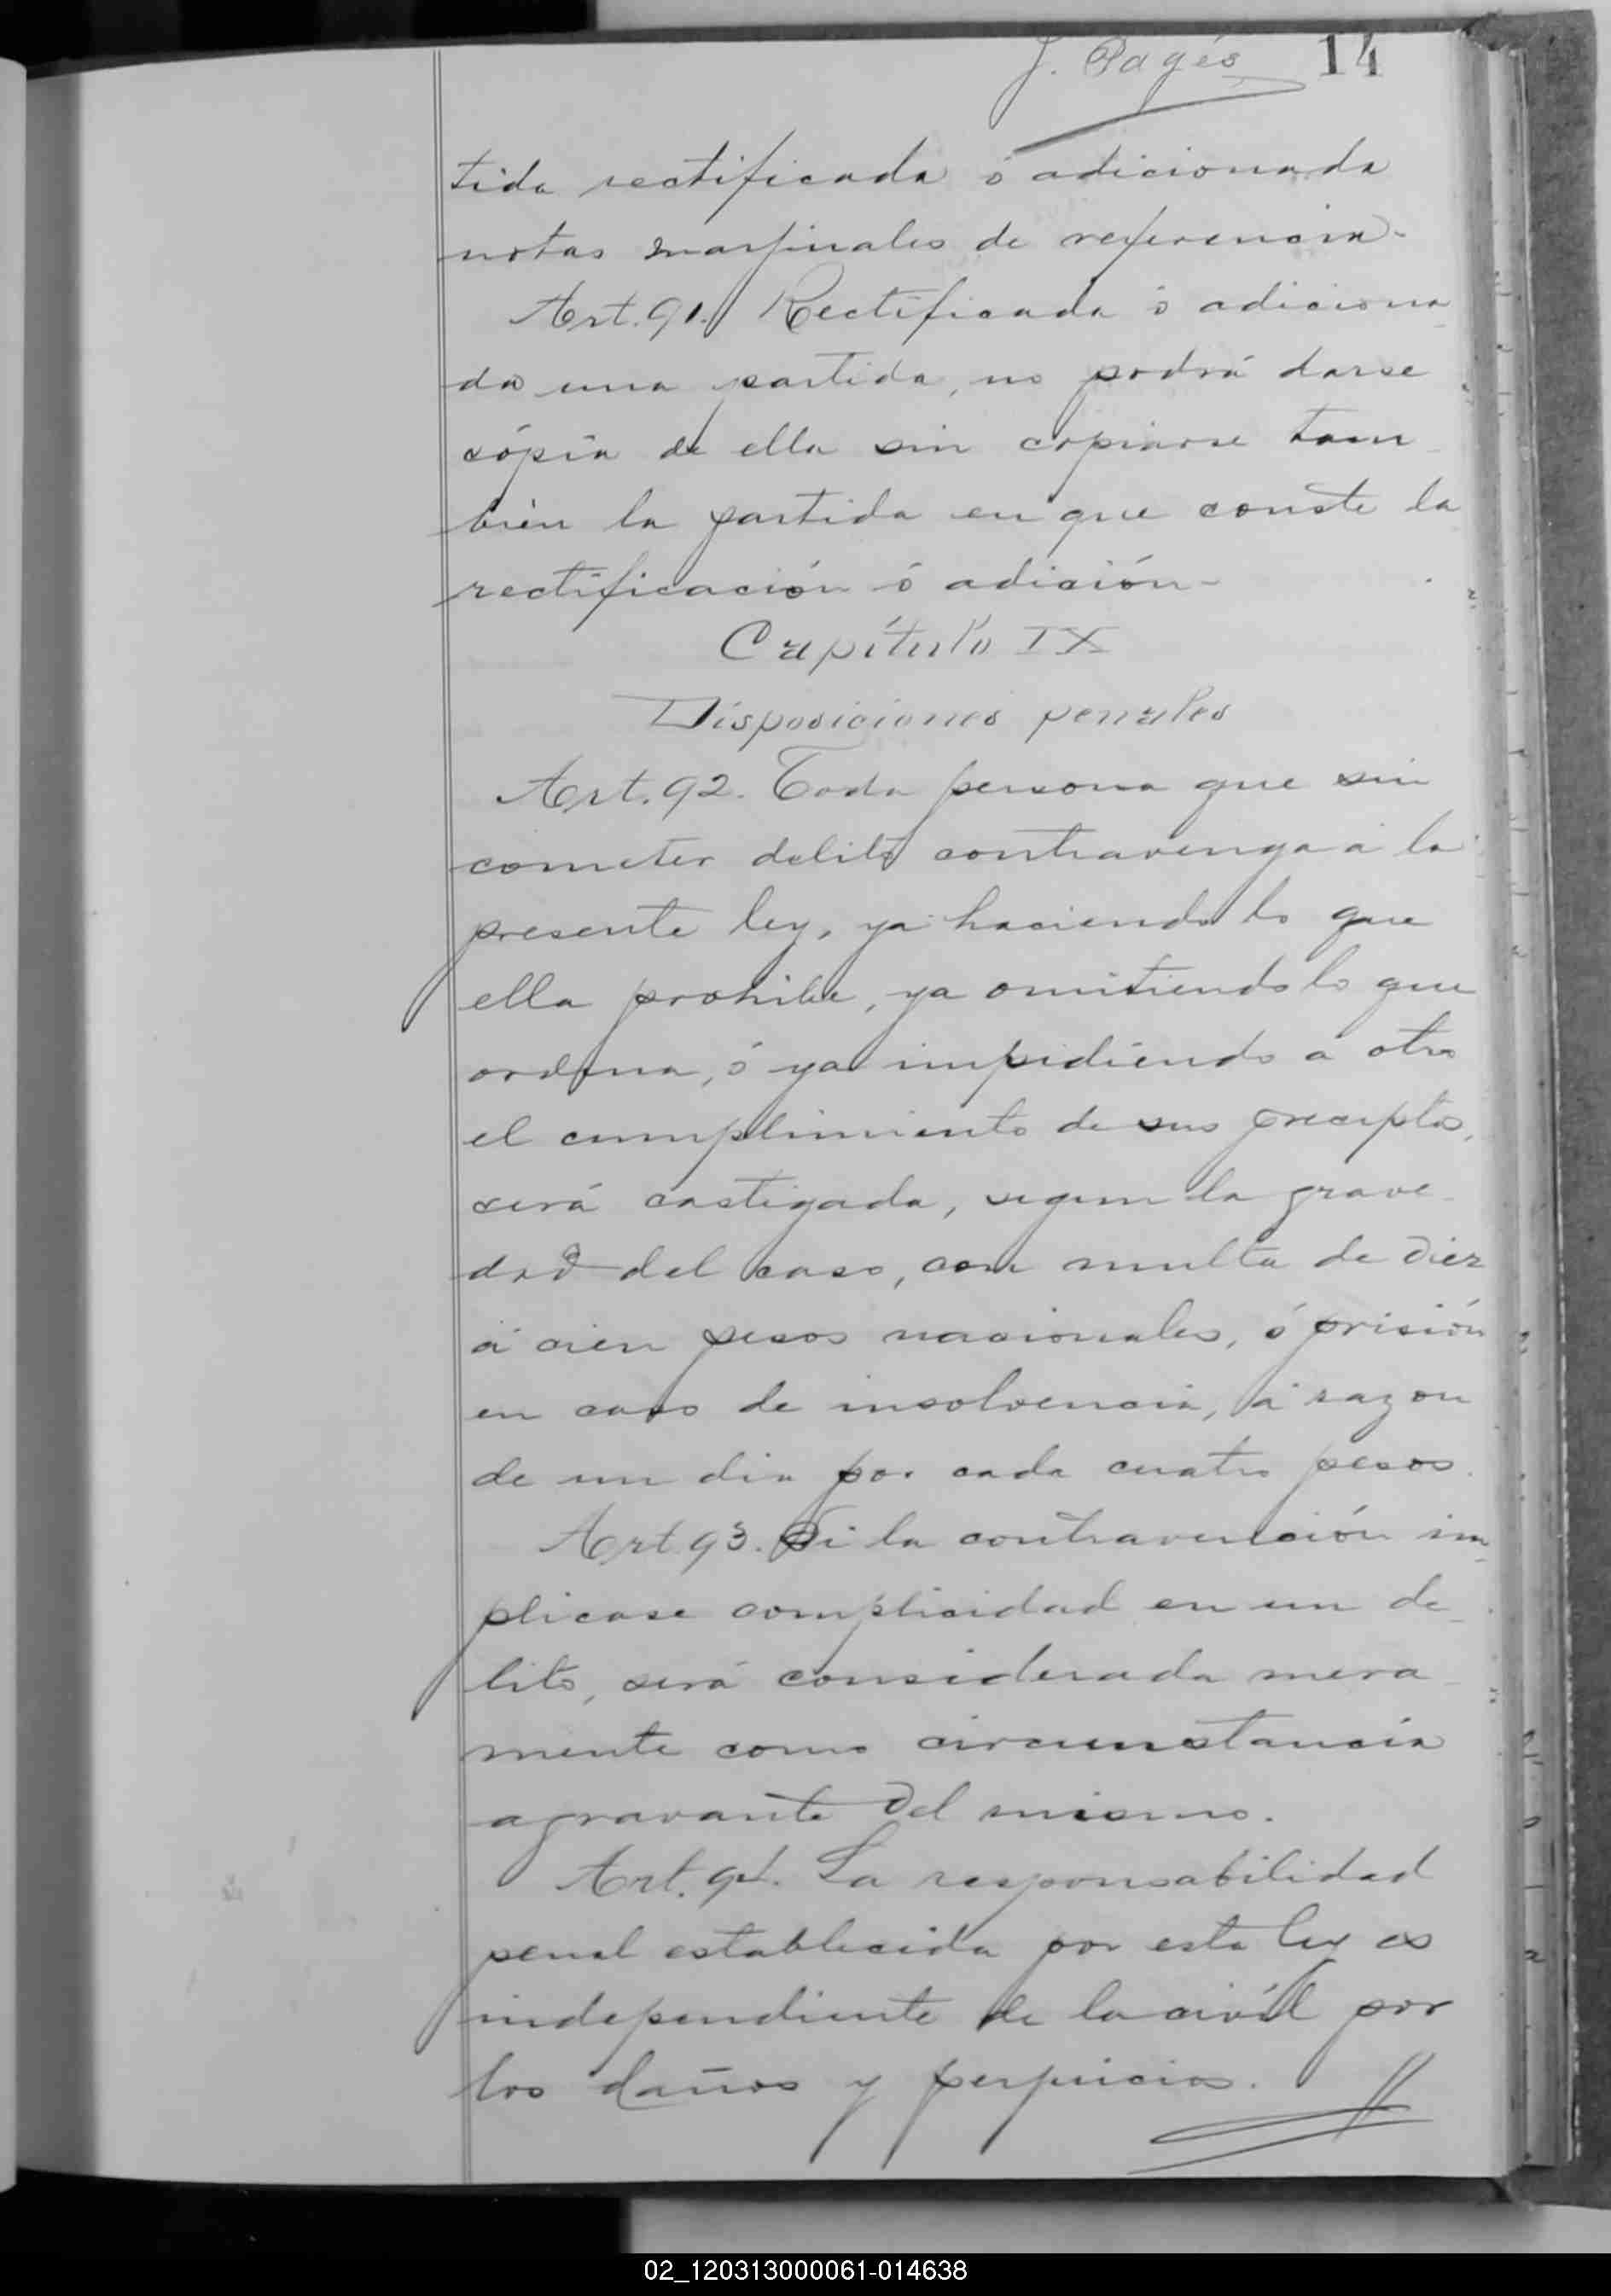 J. Pagés 14
tida rectificada ó adicionada
notas marginales de referencia.
Art. 91. Rectificada ó adiciona
da una partida, no podrá darse
cópia de ella sin copiarse tam
bién la partida en que conste la
rectificación ó adición.
Capítulo IX
Disposiciones penales
Art. 92. Toda persona que sin
cometer delito contravenga á la
presente ley, ya haciendo lo que
ella prohibe, ya omitiendo lo que
ordena, ó ya impidiendo a otro
el cumplimiento de sus preceptos,
será castigada, segun la grave
dad del caso, con multa de diez
á cien pesos nacionales, ó prisión
en caso de insolvencia, á razon
de un dia por cada cuatro pesos.
Art. 93. Si la contravención im
plicase complicidad en un de
lito, será considerada mera
mente como circunstancia
agravante del mismo.
Art. 94. La responsabilidad
penal establecida por esta ley es
independiente de la civil por
los daños y perjuicios.
02_120313000061-014638